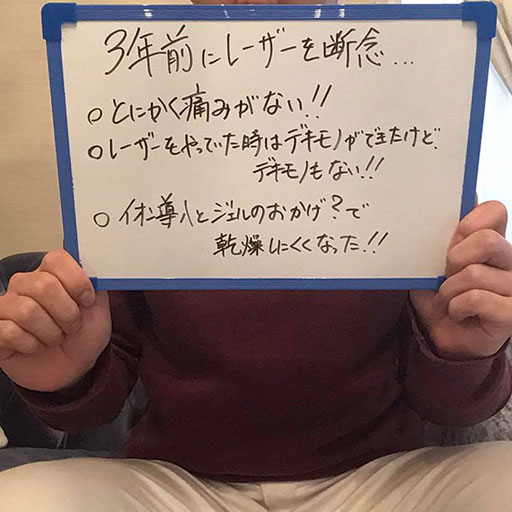 3年前にレーザーを断念...
○とにかく痛みがない!!
○レーザーをやっていた時はデキモノができたけど、
デキモノもない!!
○イオン導入とジェルのおかげ?で
乾燥しにくくなった!!